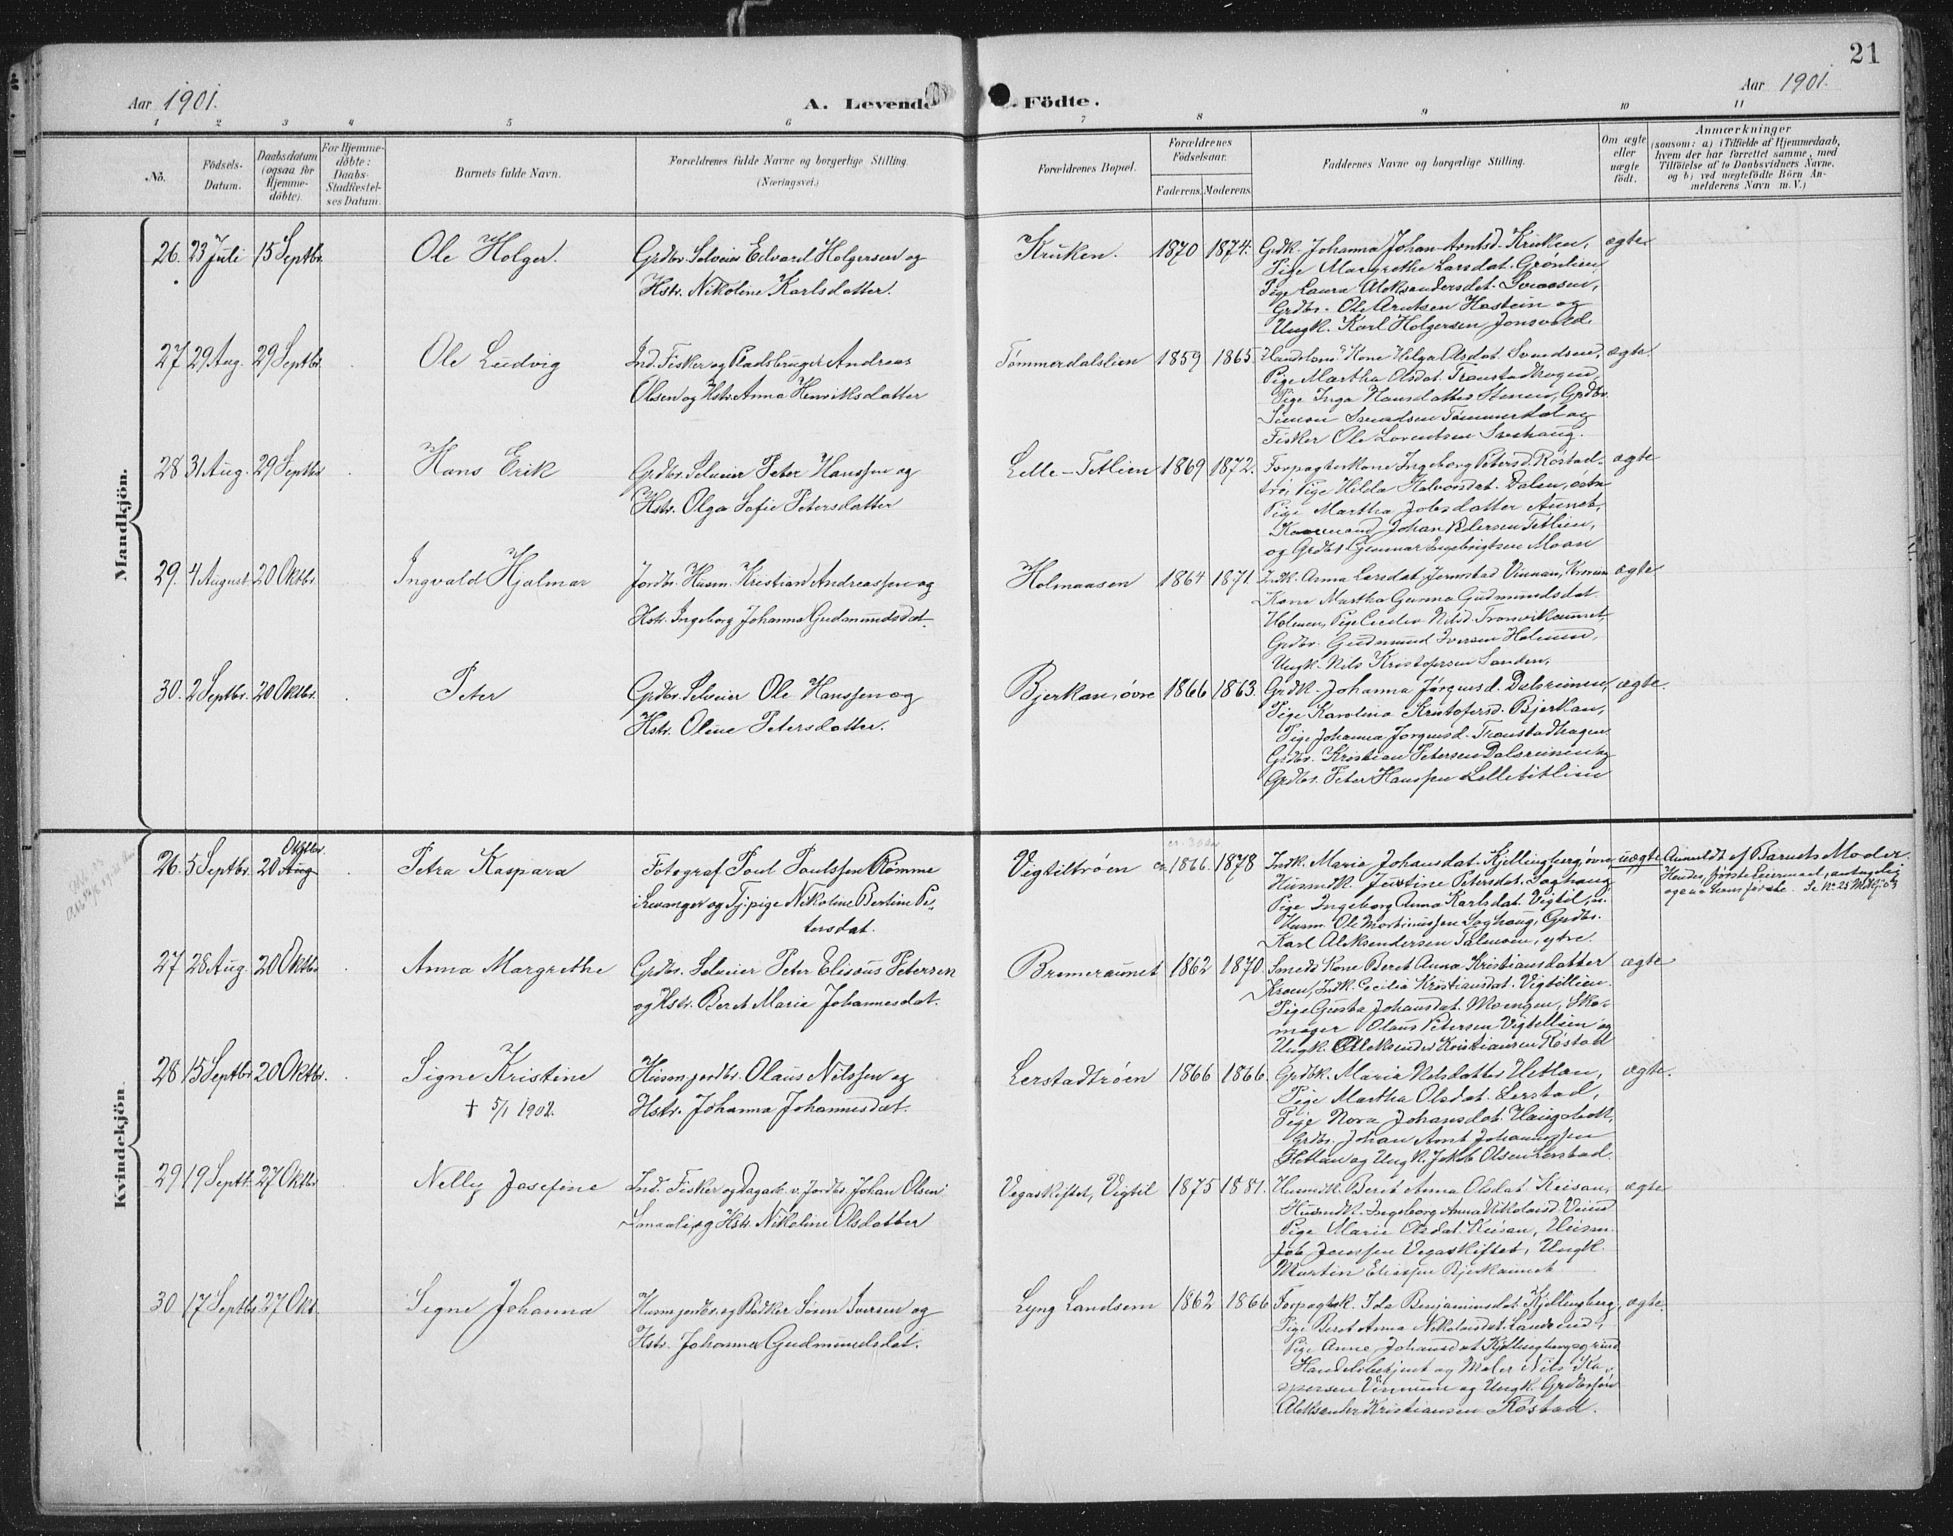 21
Aar 1901.
A. Levende Födte.
Aar 1901.
1 2 3 4 5 6 7 8 9 10 11
No.
Födsels-Datum.
Daabsdatum (ogsaa for Hjemme-döbte).
For Hjemme-döbte: Daabs-Stadfæstel-ses Datum.
Barnets fulde Navn.
Forældrenes fulde Navne og borgerlige Stilling. (Næringsvei.)
Forældrenes Bopæl.
Forældrenes Födselsaar.
Faderens. Moderens.
Faddernes Navne og borgerlige Stilling.
Om ægte eller uægte födt.
Anmærkninger
(saasom: a) i Tilfælde af Hjemmedaab,
hvem der har forrettet samme, med
Tilföielse af to Daabsvidners Navne,
og b) ved uægtefödte Börn An-
melderens Navn m. V.)
Mandkjön.
26. 23 Juli 15 Septbr. Ole Holger. Grdbr. Selveier Edvard Holgersen og
Hstr. Nikoline Karlsdatter.
Kruken. 1870 1874. Grdk. Johanna Johan-Arntsd. Kruken, ægte
Pige Margrethe Larsdat. Grönlien
Pige Laura Aleksandersdat.
Grdbr. Ole Arntsen Hastein og
Ungk. Karl Holgersen Jonsvold.
27 29 Aug. 29 Septbr. Ole Ludvig Ind. Fisker og Pladsbruger Andreas
Olsen og Hstr. Anna Henriksdatter
Tömmerdalslien 1859 1865. Kone Helga Olsdat. Svendsen, ægte.
Pige Martha Olsdat. Tronstadhagen,
Pige Inga Hansdatter Grdbr.
Simon Svendsen Tömmerdal og
Fisker Ole Lorentsen
28 31 Aug. 29 Septbr Hans Erik Grdbr. Selveier Peter Hanssen og
Hstr. Olga Sofie Petersdatter
Lelle-Tetlien 1869 1872. Forpagterkone Ingeborg Petersd. Röstad- ægte
trö, Pige Hilda Halvorsdat. Dalen, östre
Pige Martha Jobsdatter Aunet,
Johan Pedersen Tetlien,
og Grdbr. Gunnar Ingebrigtsen Moan
29. 4 August 20 Oktbr Ingvald Hjalmar Jordbr. Husm. Kristian Andreassen og
Hstr. Ingeborg Johanna Gudmundsdat.
Holmaasen 1864 1871. Indk. Anna Larsdat. Jermstad Vinnan, ægte
Kone Martha Gurina Gudmundsdat.
Holmen, Pige Cecilie Nilsd. Tronvikaunet,
Grdbr. Gudmund Iversen Holmen,
Ungk. Nils Kristofersen Sanden,
30. 2 Septbr. 20 Oktbr. Peter Grdbr. Selveier Ole Hanssen og
Hstr. Oline Petersdatter.
Bjerkan, övre 1866 1863. Grdk. Johanna Jörgensd. Dalsreinen, ægte.
Pige Karolina Kristofersd. Bjerkan,
Pige Johanna Jörgensd. Tronstadhagen
Grdbr. Kristian Petersen Dalsreinen og
Grdbr. Peter Hanssen Lelletetlien
Kvindekjön
26. 5 Septbr. 20 Aug Oktbr. Petra Kaspara Fotograf Poul Poulssen Römme
i Levanger og Tj. pige Nikoline Bertine Pe-
tersdat.
Vigtiltröen ca. 1866. 1878 Indk. Maria Johansdat. Kjellingberg, övre uægte
Husmdk. Justine Petersdat. Saghaug
Pige Ingeborg Anna Karlsdat. Vigtil,
Husm. Ole Martinussen Saghaug, Grdbr.
Karl Aleksandersen Talmoen, ytre.
Anmeldt af Barnets Moder.
Hendes første Leiermaal, antagelig
ogsaa hans første. Se No 25 Mdkj. 03
27 28 Aug. 20 Oktbr Anna Margrethe Grdbr. Selveier Peter Elisæus Petersen
og Hstr. Beret Maria Johannesdat.
Bremeraunet 1862 1870. Smeds Kone Beret Anna Kristiansdatter ægte
Kroen, Indk. Cecilia Kristiansdat. Vigtillien
Pige Gusta Johansdat. Moengen, Sko-
mager Olaus Petersen Vigtillien og
Ungk. Aleksander Kristiansen Röstad
28 15 Septbr 20 Oktbr. Signe Kristine Husm. jordbr. Olaus Nilssen og
† 5/1 1902. Hstr. Johanna Johannesdat.
Lerstadtröen 1866 1866. Grdbk. Maria Nilsdatter Hetlan, ægte.
Pige Martha Olsdat. Lerstad,
Pige Nora Johansdat. Haugskott,
Grdbr. Johan Arnt Johannessen
Hetlan og Ungk. Jakob Olsen Lerstad.
29 19 Septbr. 27 Oktbr Nelly Josefine Ind. Fisker og Dagarb. v. Jordbr. Johan Olsen
Smaali og Hstr. Nikoline Olsdatter
Vegaskiftet, Vigtil 1875 1881. Husmdk. Beret Anna Olsdat. Keisan, ægte
Husmdk. Ingeborg Anna Nikolaisd. Veiud
Pige Marie Olsdat. Keisan, Husm.
Job Jonssen Vegaskiftet, Ungk.
Martin Eliassen Bjerkaunet
30 17 Septbr 27 Okt. Signe Johanna Husm. jordbr. og Bödker Sören Iversen og
Hstr. Johanna Gudmundsdat.
Lyng Landsem 1862 1866 Forpagtsk. Ida Benjaminsdat. Kjellingberg, ægte.
Pige Beret Anna Nikolaisdat. Landsem,
Pige Anne Johansdat. Kjellingberg,
Handelsbetjent og Maler Nils Ka-
spersen Vinnum og Ungk. Grdbrsön
Aleksander Kristiansen Röstad.